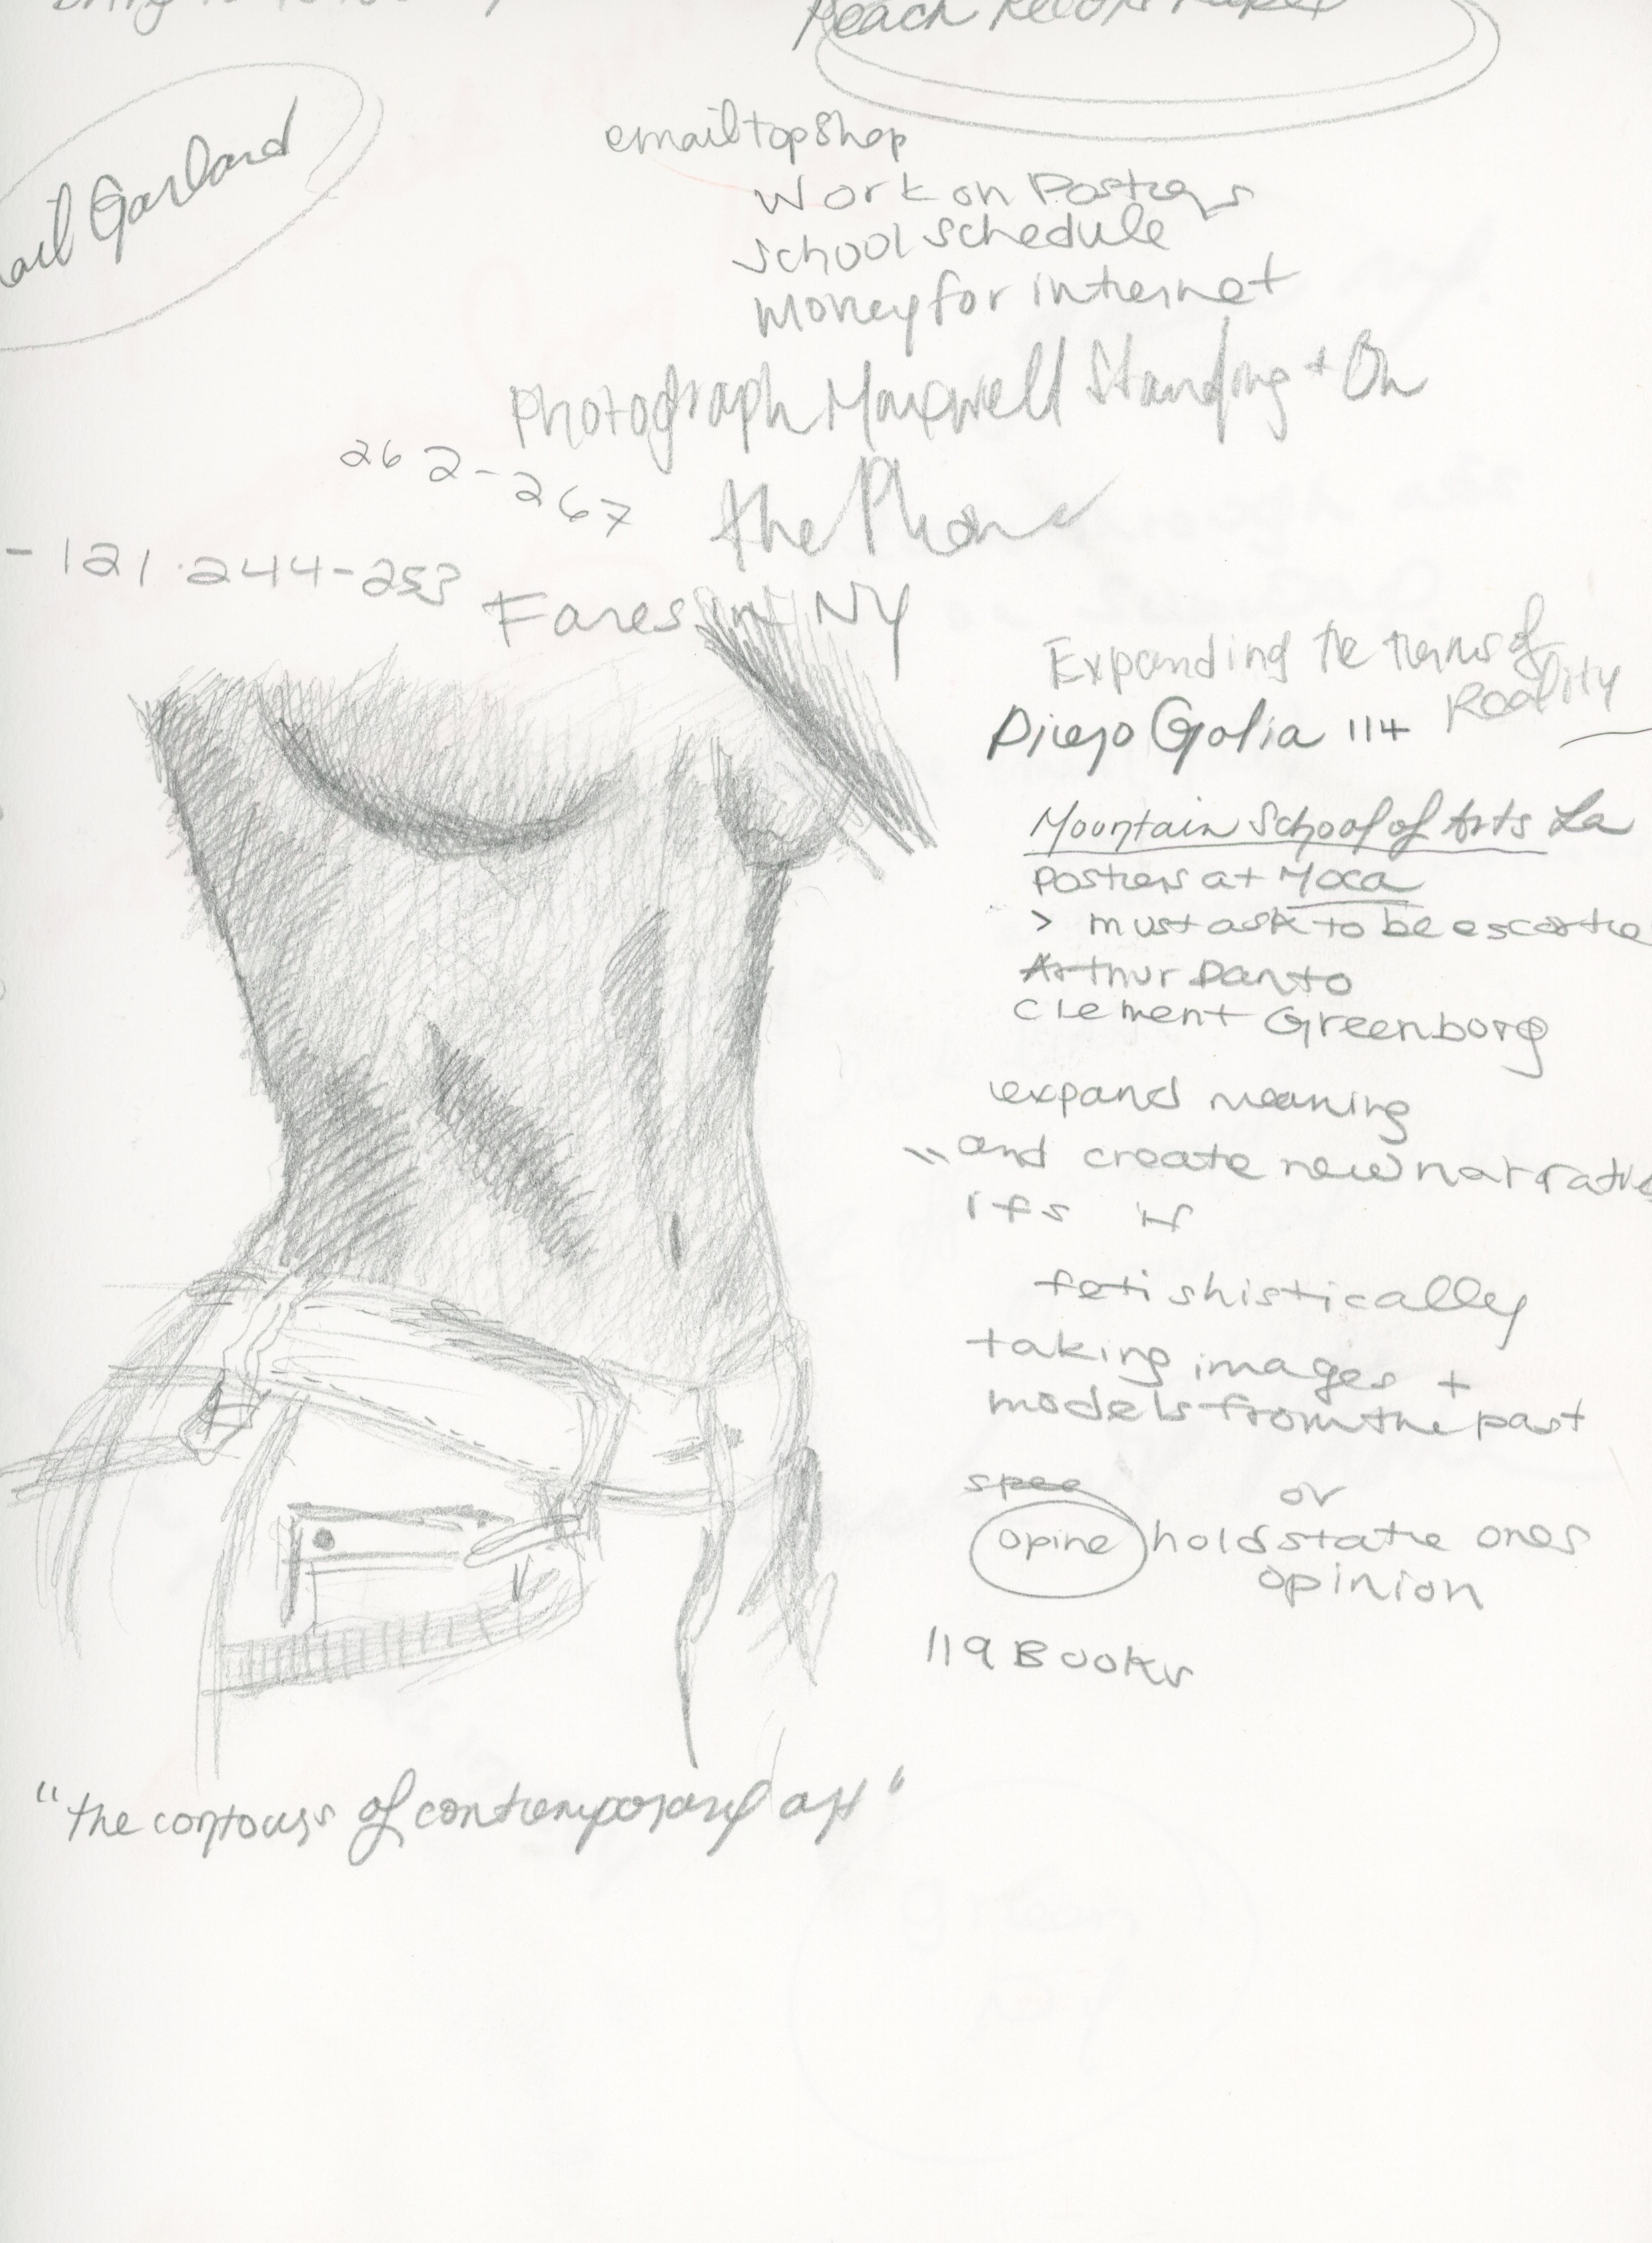 Reach
ail Garland
email topshop
Work on Posters
School schedule
Money for internet
Photograph Maxwell Standing + On
the Phone
262-267
-121.244-253
Fares in NY
Expanding the terms of
Reality
Diego Golia 114
Mountain School of Arts La
Posters at Moca
> must ask to be escorte
Arthur Danto
Clement Greenborg
expand meaning
"and create new narrative
ifs "
fetishistically
taking images +
models from the past
spee
or
opine hold state ones
opinion
119 Books
"the contours of contemporary art"